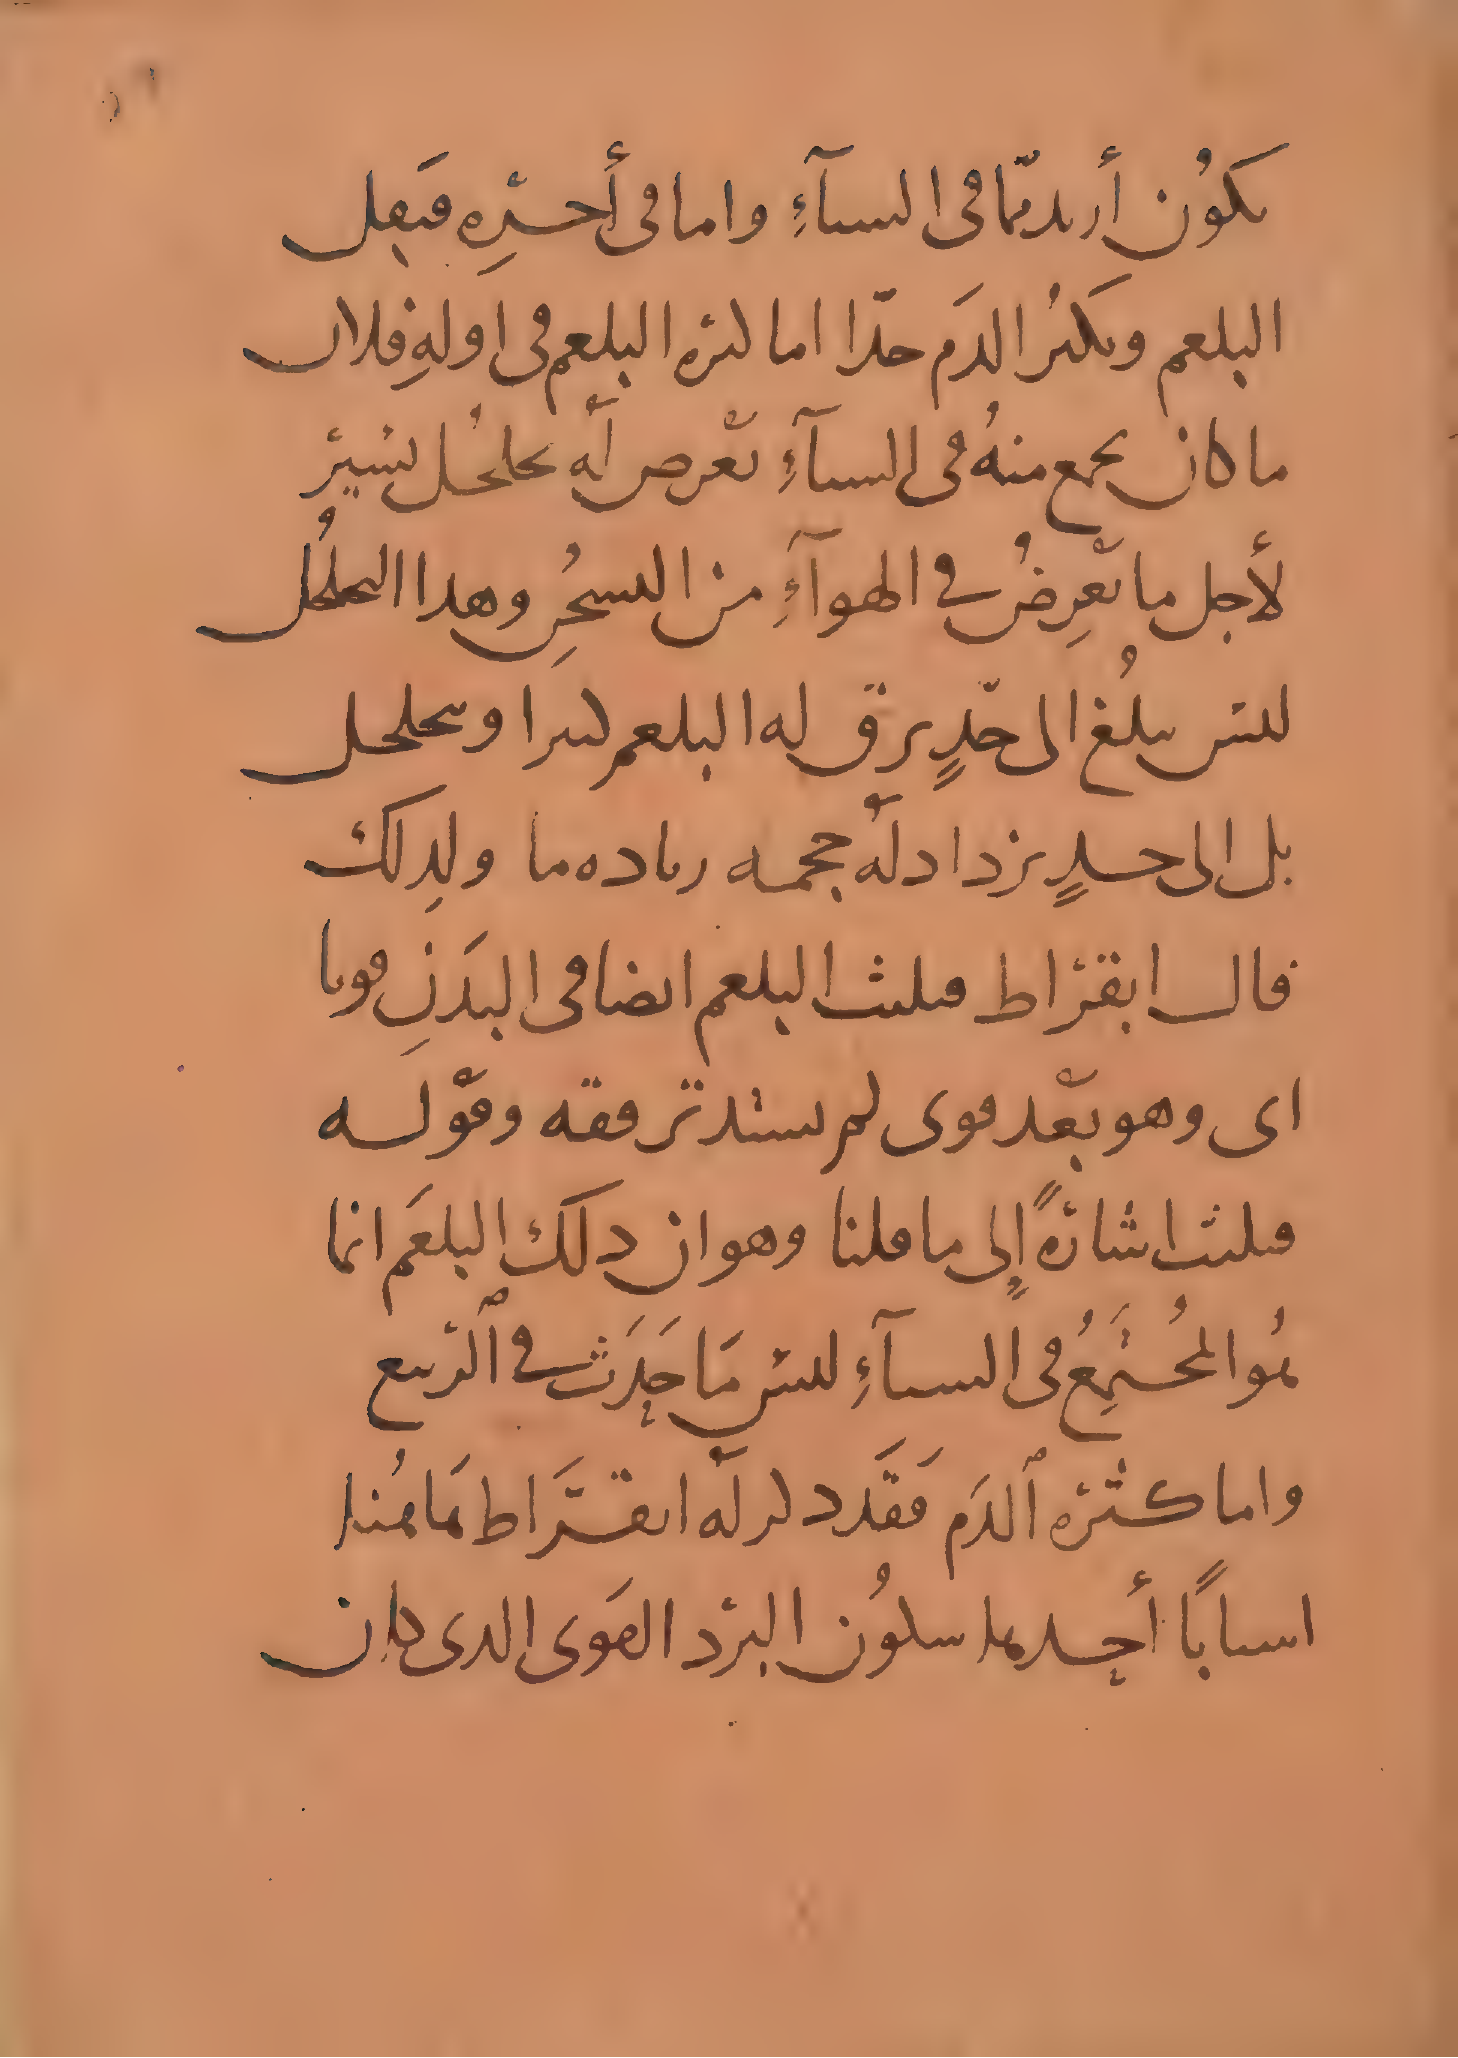 يكون أزيد مما في الشتآءِ واما في أخرِه فيقل
البلغم ويكثرُ الدَم جدّا اما كثرة البلغم في اولهِ فلان
ما كان يجمع منهُ في الشتآءِ يعْرض لَه تخلخُل يسير
لأجل ما يعْرِضُ في الهوآءِ من التسخُنِ وهذا التخلخُل
ليس يبلُغ الى حّدٍ يرق له البلغم كثيرا ويتحلحل
بل الى حدٍ يزداد لَه حجمه زيادة ما ولذِلك
قال ابقراط فيلبث البلغم ايضا في البدَنِ قويا
اى وهو بعْد قوى لم يشتد ترققه وقوْله
فيلبث اشارةً إلى ما قلنا وهو ان ذلك البلغَم انما
هُوا المُجتَمِعُ في الشتآءِ ليس مَا حَدَث في ٱلربيع
واما كثرة ٱلدَم فقَد ذكر لَه ابقرَاط هَاهُنا
اسبابًا أحدها سكوُن البرد القَوى الذى كان